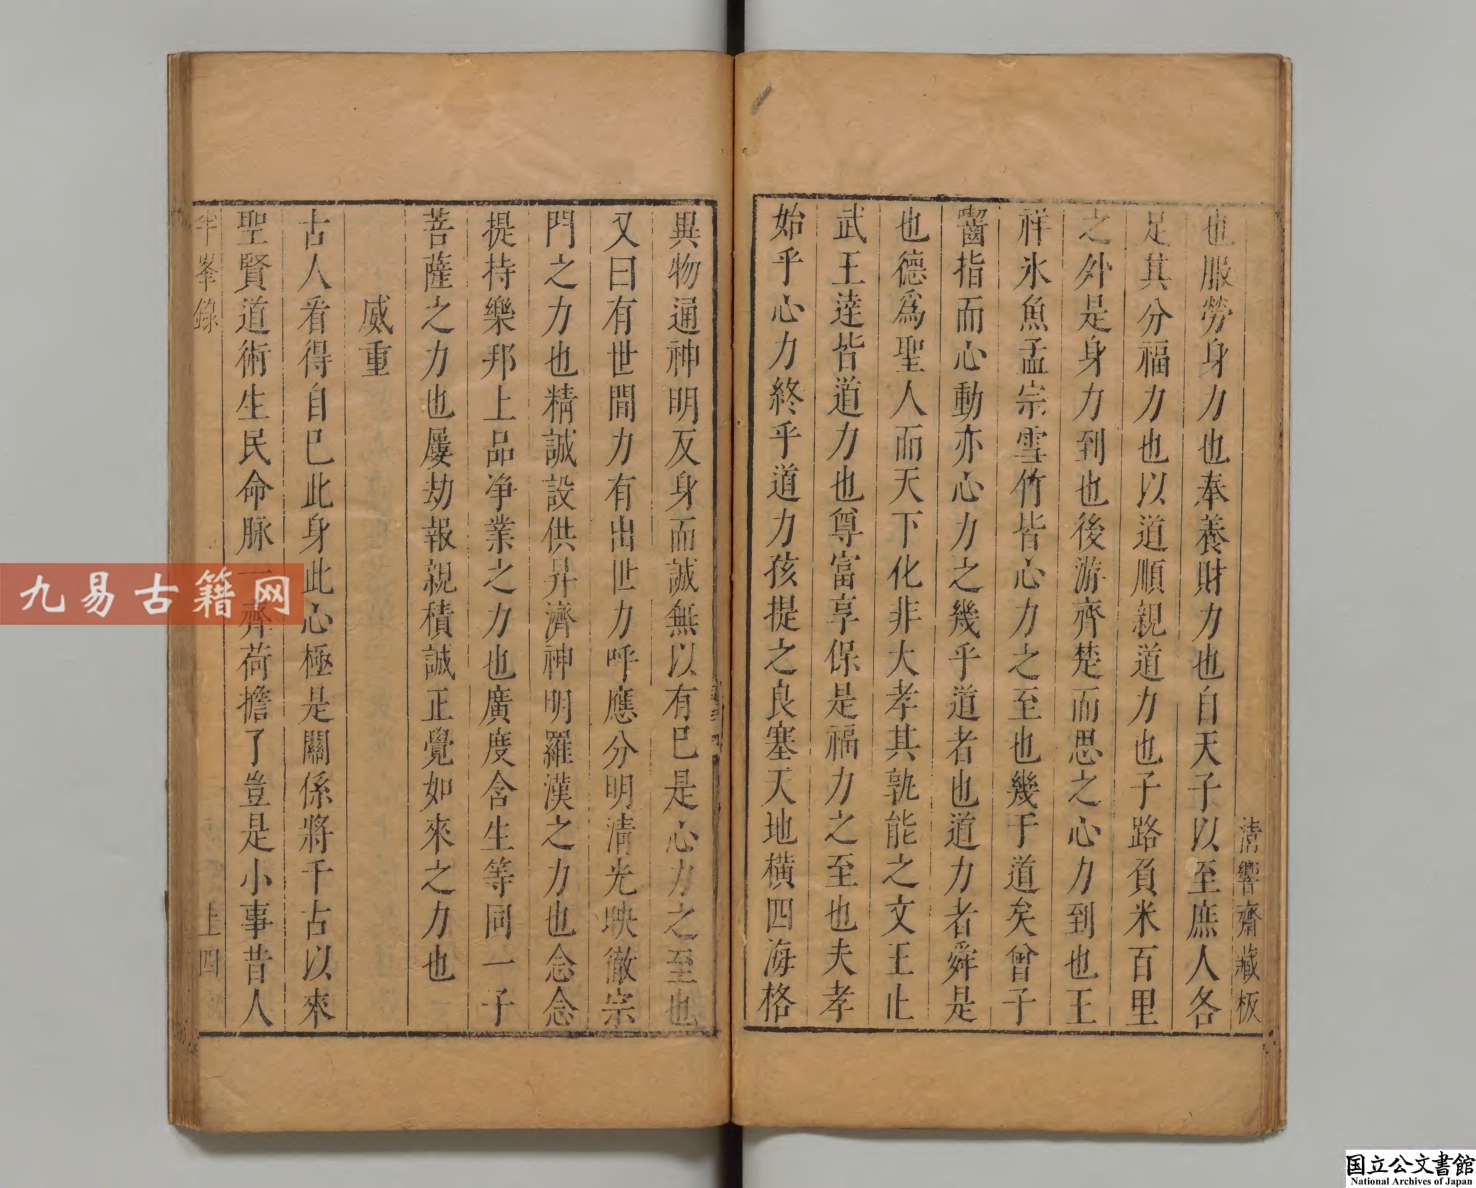 清響齋藏板
也服勞身力也奉養財力也自天子以至庶人各
足其分福力也以道順親道力也子路負米百里
之外是身力到也後游齊楚而思之心力到也王
祥氷魚孟宗雪竹皆心力之至也幾于道矣曾子
齧指而心動亦心力之幾乎道者也道力者舜是
也德爲聖人而天下化非大孝其孰能之文王止
武王達皆道力也尊富享保是福力之至也夫孝
始乎心力終乎道力孩提之良塞天地橫四海格
異物通神明反身而誠無以有已是心力之至也
又曰有世間力有出世力呼應分明清光映徹宗
門之力也精誠設供昇濟神明羅漢之力也念念
提持樂邦上品净業之力也廣度含生等同一子
菩薩之力也屢劫報親積誠正覺如來之力也
威重
古人看得自巳此身此心極是關係將千古以來
聖賢道術生民命脉一齊荷擔了豈是小事昔人
峯錄
上四
九易古籍网
国立公文書館
National Archives of Japan